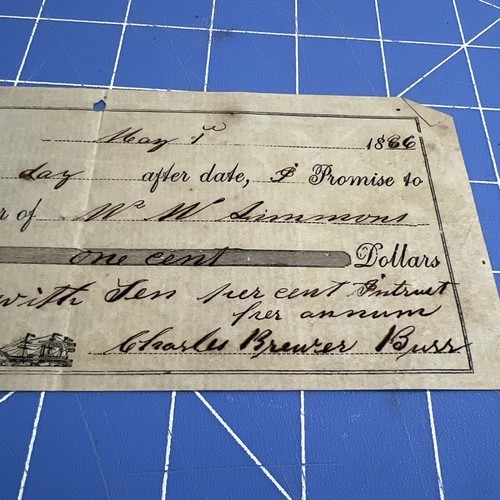 May 1st 1866
day after date, I Promise to
r of W W Simmons
one cent Dollars
with Ten per cent Intrust
per annum
Charles Brewer Burr